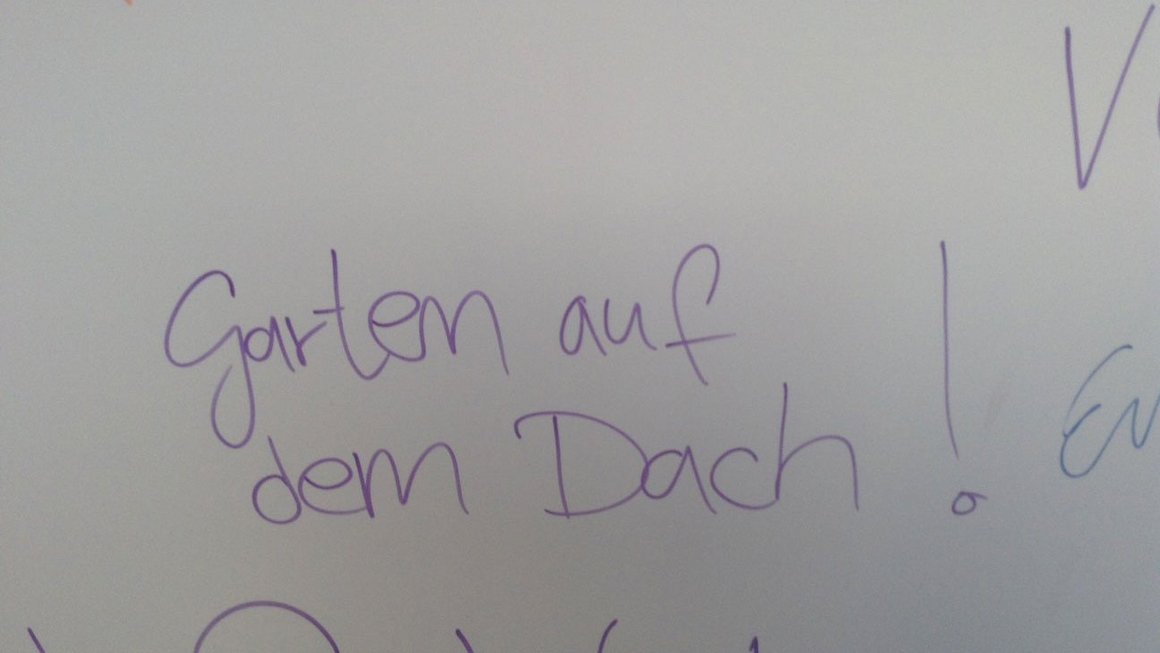 Garten auf
dem Dach!